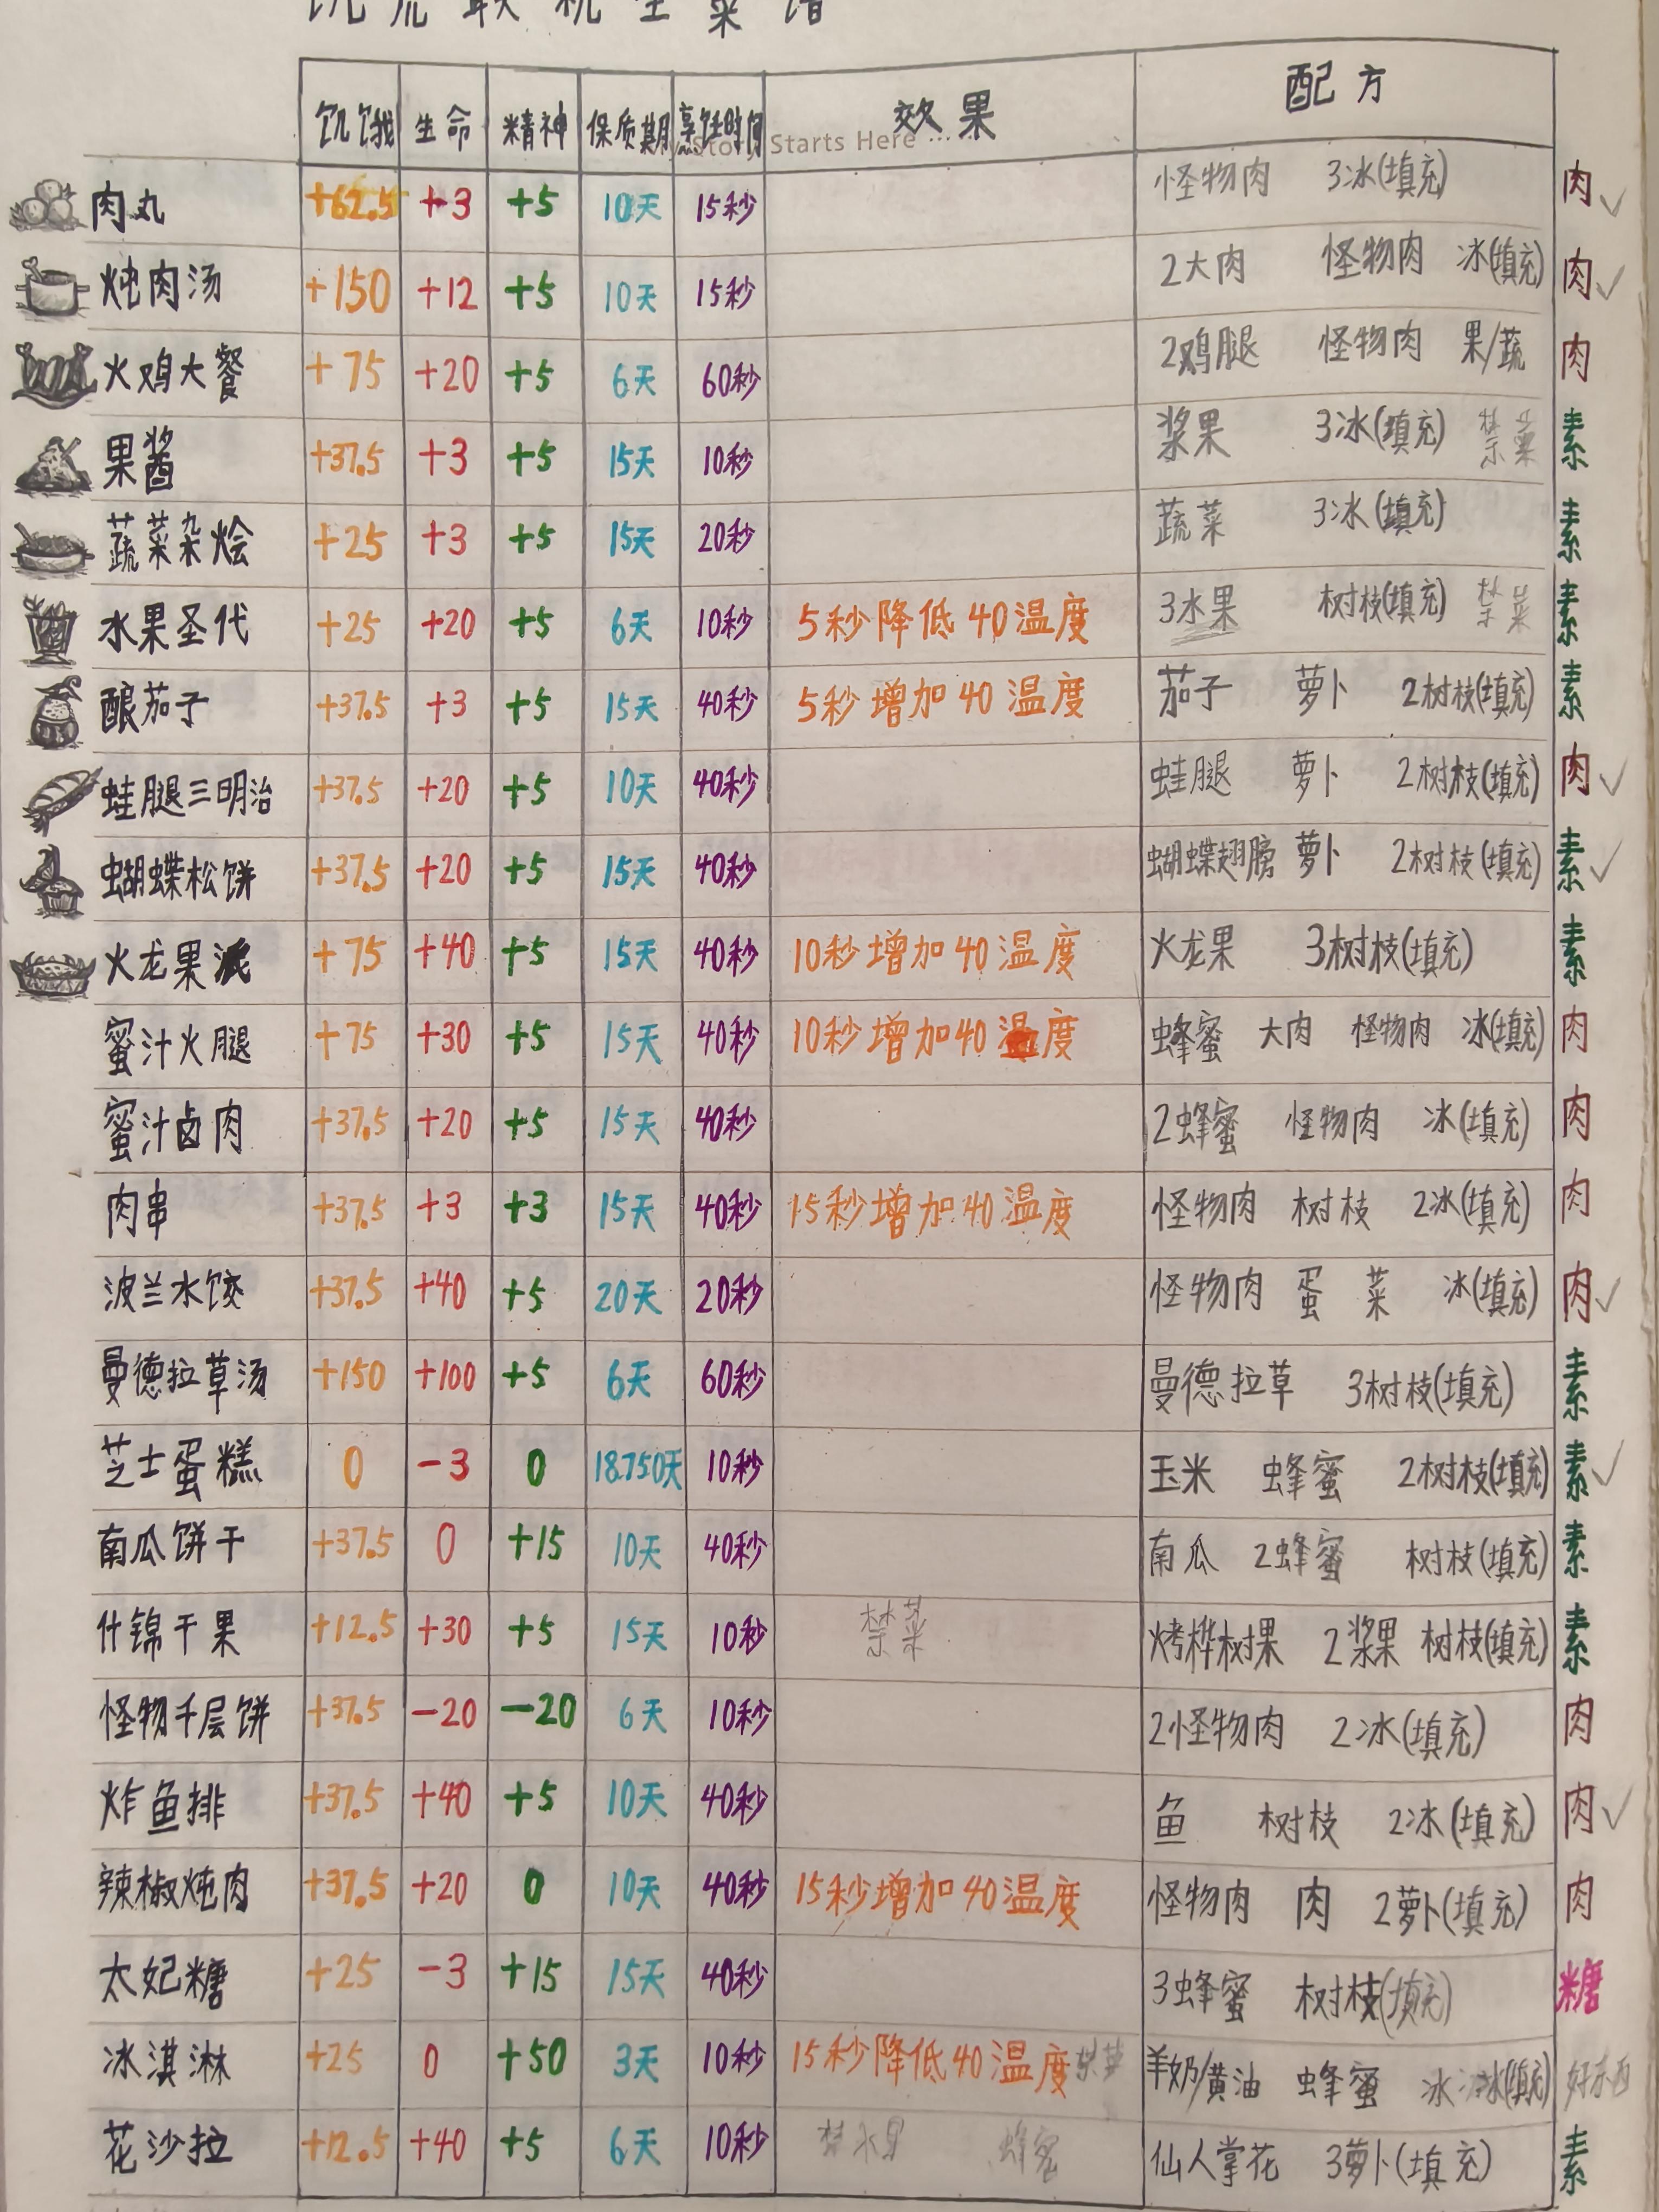 饥荒联机全菜谱
饥饿 生命 精神 保质期 烹饪时间 效果 配方
My Story Starts Here ...
肉丸 +62.5 +3 +5 10天 15秒 怪物肉 3冰(填充) 肉✓
炖肉汤 +150 +12 +5 10天 15秒 2大肉 怪物肉 冰(填充) 肉✓
火鸡大餐 +75 +20 +5 6天 60秒 2鸡腿 怪物肉 果/蔬 肉
果酱 +37.5 +3 +5 15天 10秒 浆果 3冰(填充) 禁菜 素
蔬菜杂烩 +25 +3 +5 15天 20秒 蔬菜 3冰(填充) 素
水果圣代 +25 +20 +5 6天 10秒 5秒降低40温度 3水果 树枝(填充) 禁菜 素
酿茄子 +37.5 +3 +5 15天 40秒 5秒增加40温度 茄子 萝卜 2树枝(填充) 素
蛙腿三明治 +37.5 +20 +5 10天 40秒 蛙腿 萝卜 2树枝(填充) 肉✓
蝴蝶松饼 +37.5 +20 +5 15天 40秒 蝴蝶翅膀 萝卜 2树枝(填充) 素✓
火龙果派 +75 +40 +5 15天 40秒 10秒增加40温度 火龙果 3树枝(填充) 素
蜜汁火腿 +75 +30 +5 15天 40秒 10秒增加40温度 蜂蜜 大肉 怪物肉 冰(填充) 肉
蜜汁卤肉 +37.5 +20 +5 15天 40秒 2蜂蜜 怪物肉 冰(填充) 肉
肉串 +37.5 +3 +3 15天 40秒 15秒增加40温度 怪物肉 树枝 2冰(填充) 肉
波兰水饺 +37.5 +40 +5 20天 20秒 怪物肉 蛋 菜 冰(填充) 肉✓
曼德拉草汤 +150 +100 +5 6天 60秒 曼德拉草 3树枝(填充) 素
芝士蛋糕 0 -3 0 18750天 10秒 玉米 蜂蜜 2树枝(填充) 素✓
南瓜饼干 +37.5 0 +15 10天 40秒 南瓜 2蜂蜜 树枝(填充) 素
什锦干果 +12.5 +30 +5 15天 10秒 禁菜 烤桦树果 2浆果 树枝(填充) 素
怪物千层饼 +37.5 -20 -20 6天 10秒 2怪物肉 2冰(填充) 肉
炸鱼排 +37.5 +40 +5 10天 40秒 鱼 树枝 2冰(填充) 肉✓
辣椒炖肉 +37.5 +20 0 10天 40秒 15秒增加40温度 怪物肉 肉 2萝卜(填充) 肉
太妃糖 +25 -3 +15 15天 40秒 3蜂蜜 树枝(填充) 糖
冰淇淋 +25 0 +50 3天 10秒 15秒降低40温度 禁菜 羊奶/黄油 蜂蜜 冰 冰(填充) 好东西
花沙拉 +12.5 +40 +5 6天 10秒 禁水果 蜂蜜 仙人掌花 3萝卜(填充) 素